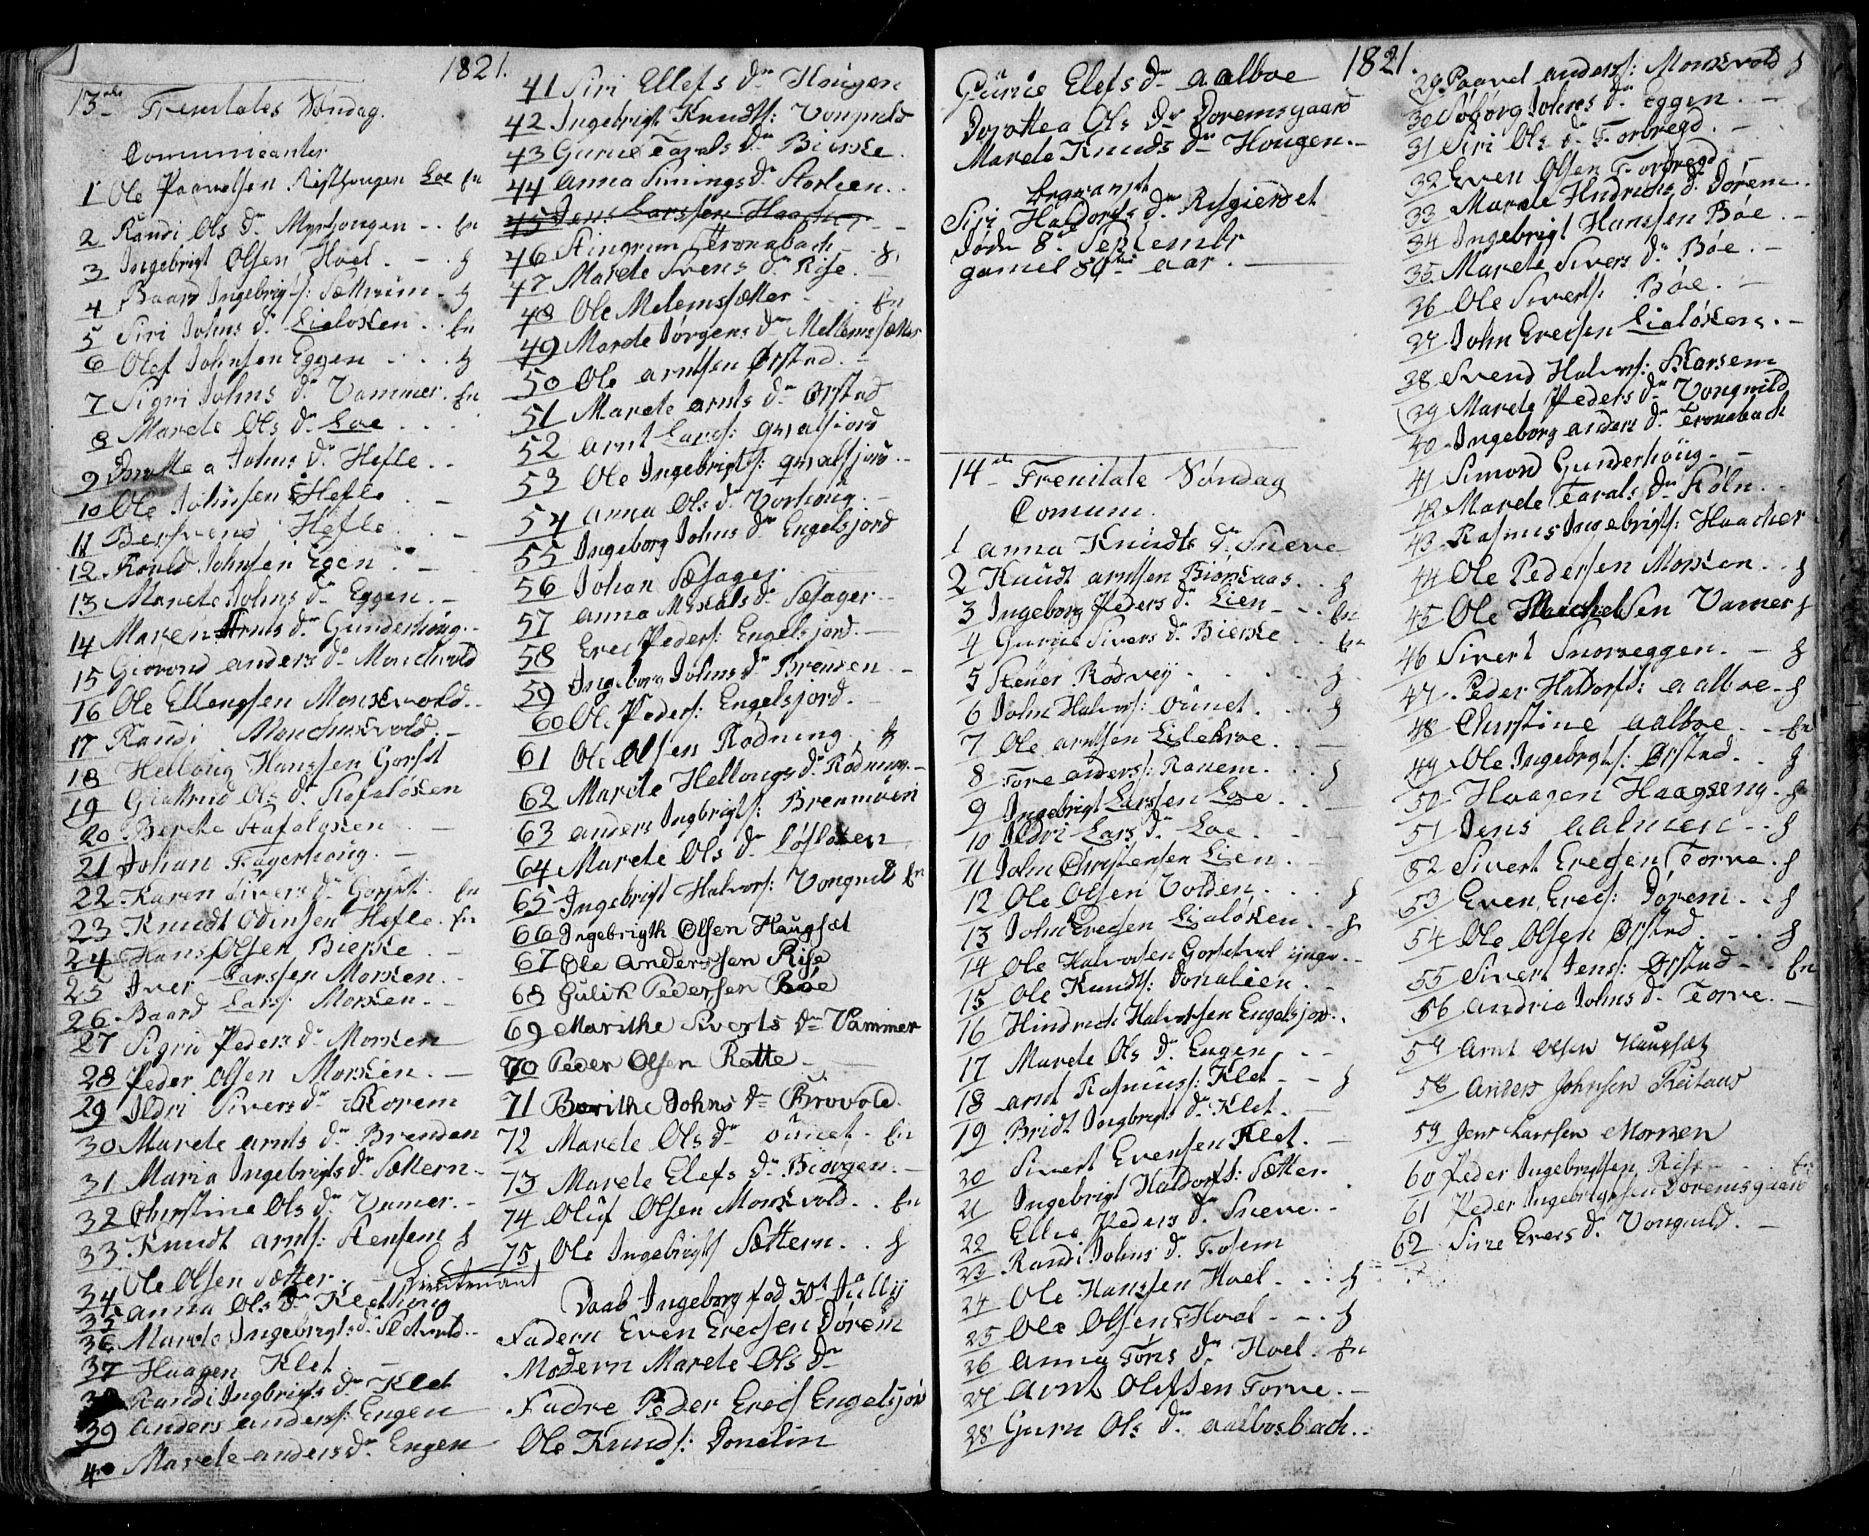 1821.
13de Trenitates Søndag.
Comunicanter
1 Ole Paavelsen Risthougen Loe En
2 Randi Ols dr Myrhougen - . En
3 Ingebrigt Olsen Hoel . - . g
4 Baard Ingebrigts: Sættrum - g
5 Siri Johns dr Lialøkken . . En
6 Olef Johnsen Eggen . . . g
7 Sigri Johns dr Vammer . En
8 Marete Ols dr Loe . . .
9 Dorotte a Johns dr Hefle . .
10 Ole Johnsen Hefle . -
11 Bersvend Hefle . . -
12 Rould Johnsen Egen . -
13 Marete Johns dr Eggen . -
14 Maren Arnts dr Gunderhoug . -
15 Giøvond anders dr Monchvold
16 Ole Ellengsen Monskvold . -
17 Randi Monchskvold . -
18 Helloug Hanssen Gorset
19 Giertrud Ols dr Stafaløkken
20 Berete Stafaløkken . -
21 Johan Fagerhoug . -
22 Karen Sivers dr Gorset . En
23 Knudt Odinsen Hefle . En
24 Hans Olsen Bierke . -
25 Iver Larssen Morken . -
26 Baard Lars: Morken . -
27 Sigri Peders dr Morken
28 Peder Olsen Morken . -
29 Ildri Sivers dr Korem
30 Marete arnts dr Brenden
31 Maria Ingebrigts dr Sættern -
32 Christine Ols dr Vamer . -
33 Knudt arnts: Stensem g
34 Ole Olsen Sætter . - Lieutenant
35 anna Ols dr Klethoug
36 Marete Ingebrigts dr Sletvold . -
37 Haagen Klet . -
38 Randi Ingbrigts dr Klet
39 anders anders: Engen
40 Marete anders dr Engen
41 Siri Ellefs dr Hougen
42 Ingebrigt Knudts: Vongvild
43 Gurue Tarals dr Bierke .
44 anna Simings dr Storlien . .
45 Jens Larssen Haarhoug . -
46 Stingrim Tronabach - . g
47 Marete Svens dr Rise . -
48 Ole Melemssætter . . En
49 Marete Jørgens dr Mellemsætter
50 Ole arntsen Ørstad . -
51 Marete arnts dr Ørstad
52 arnt Lars: gvalsjord
53 Ole Ingebrigts: gvalsjord . -
54 anna Ols dr Vorhoug . -
55 Ingeborg Johns dr Engelsjord
56 Johan Sæsager . -
57 anna Mikals dr Sæsager . -
58 Erec Peders: Engelsjord . -
59 Ingeborg Johns dr Brenden . -
60 Ole Peders: Engelsjord . -
61 Ole Olsen Rødning . g
62 Marete Hellougs dr Rødning . -
63 anders Ingbrigts: Brenmoen
64 Marete Ols dr Løsløkken
65 Ingebrigt Halvors: Vongvild En
66 Ingebrigth Olsen Haugsæt
67 Ole Anderssen Rise
68 Gulik Pedersen Bøe
69 Marithe Siverts dr Vammer
70 Peder Olsen Rette . -
71 Berithe Johns dr Brøvold .
72 Marete Ols dr ouneet . En
73 Marete Elefs dr Biørgen . -
74 Oluf Olsen Monskvold . . En
75 Ole Ingebrigts Sættern . . g
Daab Ingeborg fød 30t Jully
Fadern Even Erecsen Dørem
Modern Marete Ols dr
Fadre Peder Erecs Engelsjord
Ole Knuds: Donelin
1821.
Gurue Elefs dr aalboe
Dorothea Ols dr Doremsgaard
Marete Knuds dr Hougen . -
Begravet
Siri Haldors dr Risgierdet
døde 8de Septembr
gamel 80 aar . -
14de Trenitate Søndag
Comum.
1 anna Knudts dr Sneve
2 Knudt arntsen Biørkaas . . g
3 Ingeborg Peders dr Lien - . . En
4 Gurue Sivers dr Bierke . . En
5 Steuer Rødvej . . . g
6 John Halvors: Ounet . . . g
7 Ole arntsen Lilehoe . . -
8 Tore anders: Ranem . . . g
9 Ingebrigt Larssen Loe . . -
10 Ildri Lars dr Loe . . -
11 John Christensen Lien . -
12 Ole Olsen Volden . . . g
13 John Erecsen Lialøkken . . g
14 Ole Halvorsen Gorset yngr. -
15 Ole Knudts: Donalien . -
16 Hindrich Halvorsen Engelsjord . .
17 Marete Ols dr Eugen . -
18 arnt Rasmus: Klet . - g
19 Bridt Ingbrigts dr Klet . -
20 Sivert Evensen Klet . -
21 Ingebrigt Haldors: Sætter .
22 Ellie Peders dr Sneve . -
23 Randi Johns dr Fosem
24 Ole Hanssen Hoel . . . g
25 Ole Olsen Hoel - . . g
26 anna Tøris dr Hoel . En
27 Arnt Olefsen Torve . -
28 Guru Ols dr aalbosbach . .
29 Paavel anders: Monskvold g
30 Søborg Johnes dr Eggen . -
31 Siri Ols dr Forbregd . -
32 Even Olsen Forbregd . -
33 Marete Hindrichs dr Dørem . .
34 Ingebrigt Hanssen Bøe . -
35 Marete Sivers dr Bøe . -
36 Ole Siverts: Bøe . -
37 John Erecsen Lialøkken . -
38 Svend Halvors: Skorsem
39 Marete Peders dr Vongvild
40 Ingeborg anders dr Tronabach
41 Simond Gunderhoug . -
42 Marete Tarals dr Støln . .
43 Rasmus Ingebrigts: Haacker
44 Ole Pedersen Morken . . g
45 Ole Michelsen Vamer g
46 Sivert Snoreggen . - g
47 Peder Haldors: aalboe - g
48 Christine aalboe . . En
49 Ole Ingebrigts: Ørstad . . g
50 Haagen Haagseng . g
51 Jens aalmen . . g
52 Sivert Erecsen Torve . g
53 Even Erecs: Dørem . . g
54 Ole Olsen Ørstad . . . g
55 Sivert Jens: Ørstad - . En
56 andria Johns dr Torve . -
57 Arnt Olsen Haugsæt
58 Anders Johnsen
59 Jens Larssen Morken
60 Peder Ingebrigtsen Rise . . En
61 Peder Ingebrigtsen Doremsgaard
62 Sirre Erecs dr Vongvild . -